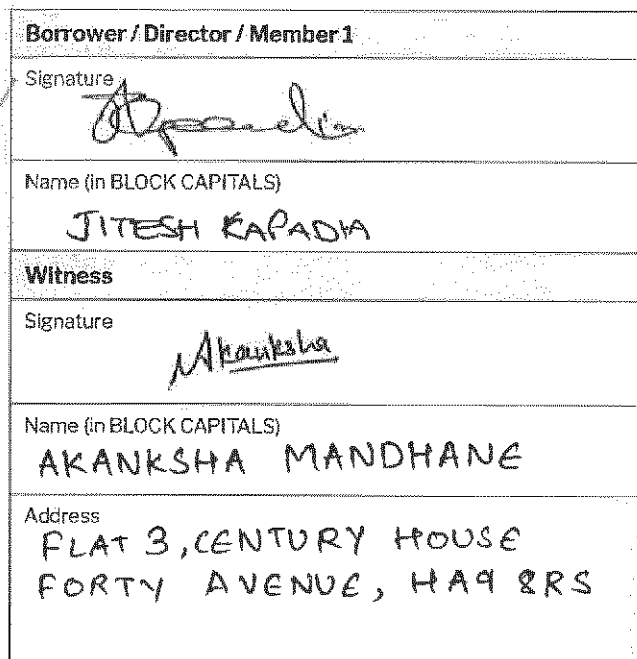 Borrower / Director / Member 1
Signature
Name (in BLOCK CAPITALS)
JITESH KAPADIA
Witness
Signature
Akanksha
Name (in BLOCK CAPITALS)
AKANKSHA MANDHANE
Address
FLAT 3, CENTURY HOUSE
FORTY AVENUE, HA9 8RS